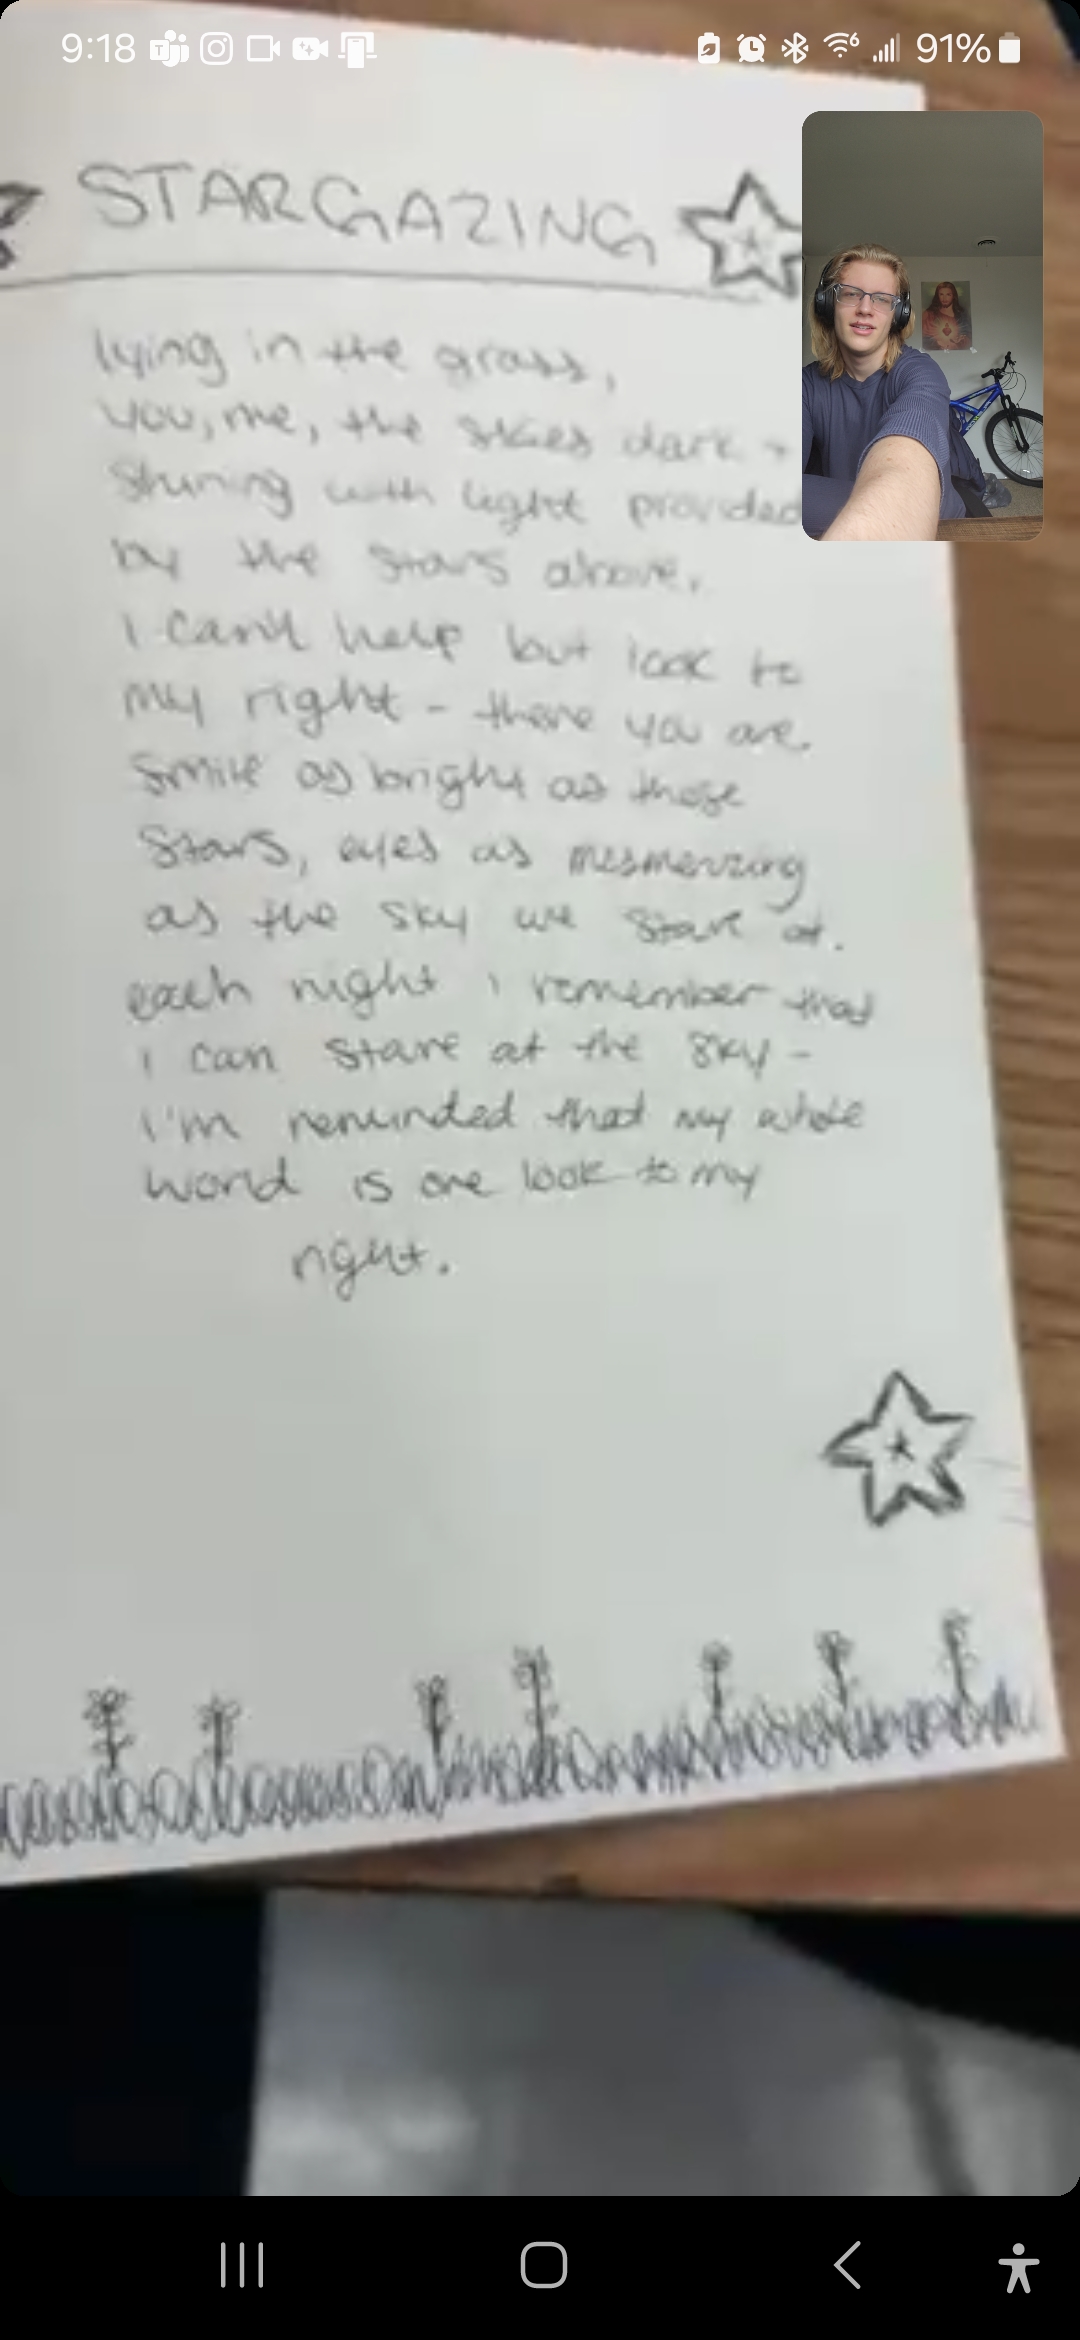 9:18
91%
STARGAZING
lying in the grass,
you, me, the skies dark +
shining with light provided
by the stars above.
I can't help but look to
my right - there you are.
smile as bright as those
stars, eyes as mesmerizing
as the sky we stare at.
each night I remember that
I can stare at the sky -
I'm reminded that my whole
world is one look to my
right.